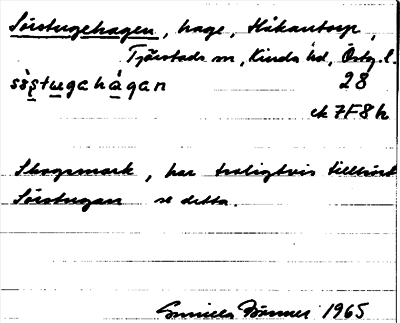 Sörstugehagen, hage, Håkantorp,
Tjärstads sn, Kinds hd, Östg. l.
sö̀ṣtugahágan 28
ek 7F8h
Skogsmark, har troligtvis tillhört
Sörstugan se detta.
Gunilla 1965